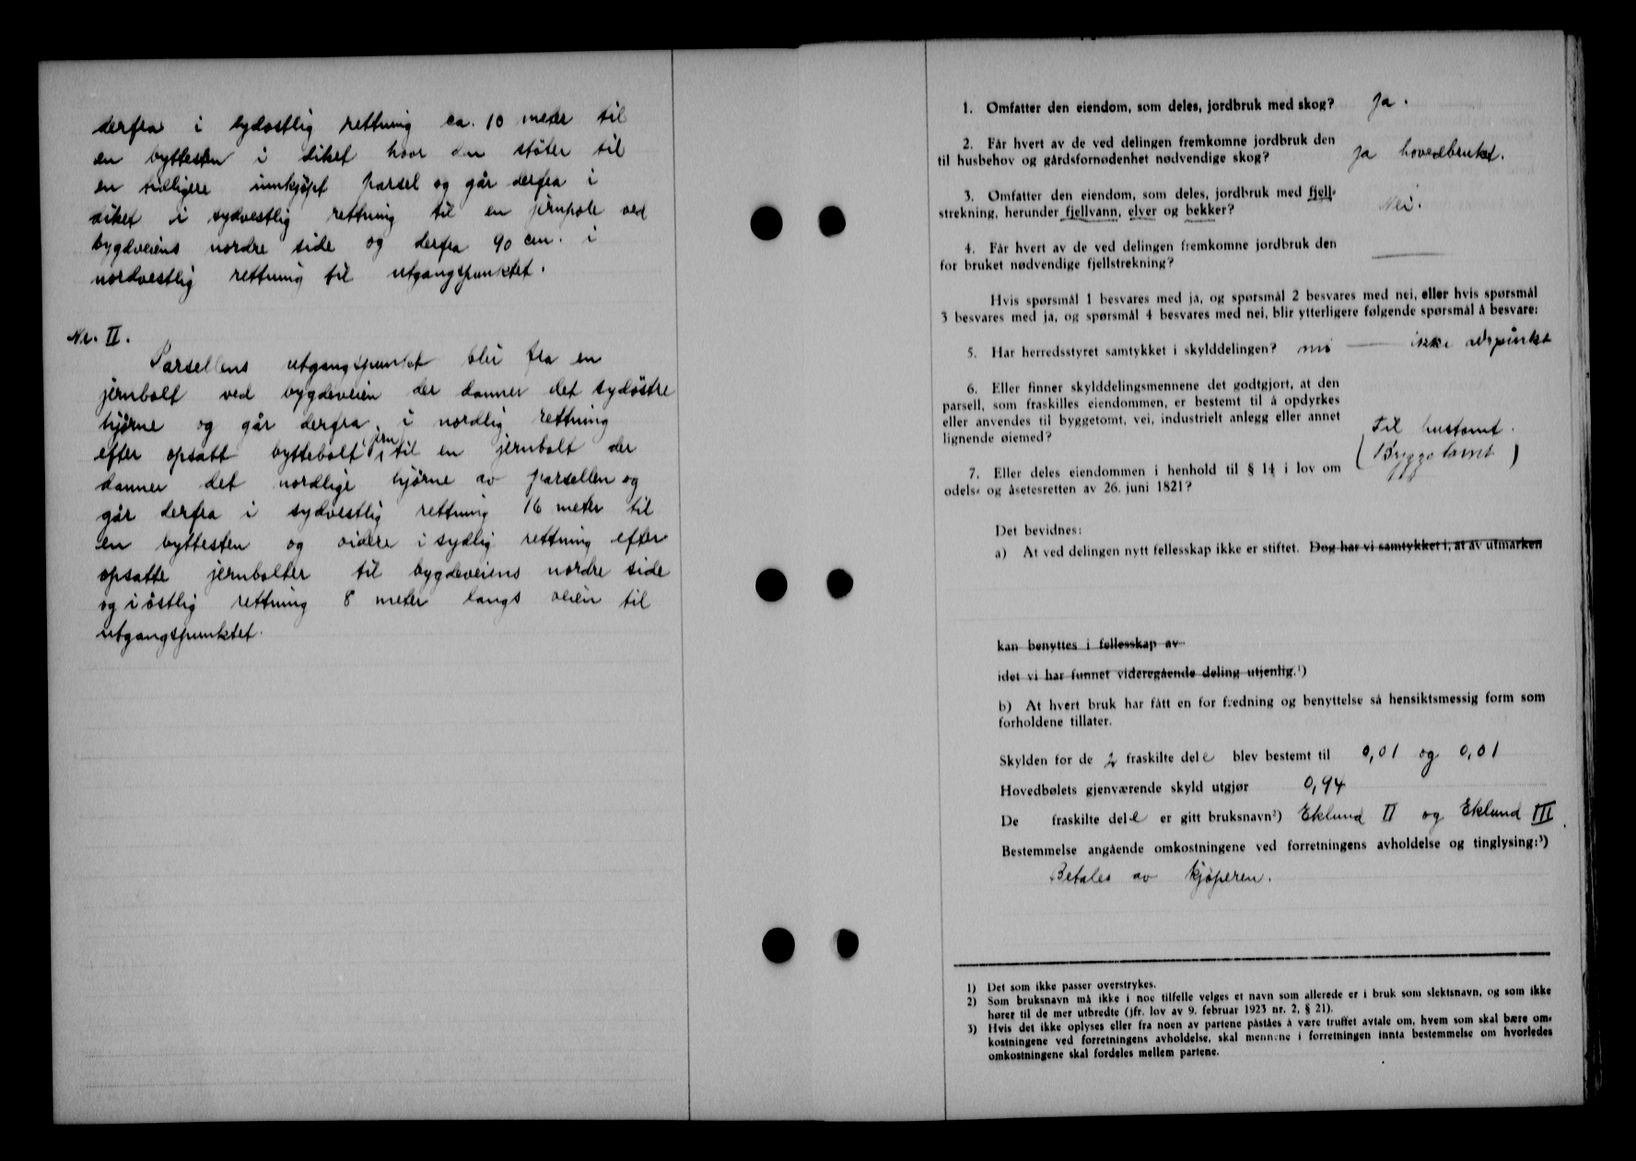 derfra i sydøstlig rettning ca. 10 meter til
en byttesten i diket hvor den støter til
en tidligere innkjøpt parsel og går derfra i
diket i sydvestlig rettning til en jernpæle ved
bygdveiens nordre side og derfra 90 cm. i
nordvestlig rettning til utgangspunktet.
Nr. II.
Parsellens utgangspunkt blir fra en
jernbolt ved bygdeveien der danner det sydøstre
hjørne og går derfra i nordlig rettning
efter opsatt byttebolt i jern til en jernbolt der
danner det nordlige hjørne av parsellen og
går derfra i sydvestlig rettning 16 meter til
en byttesten og videre i sydlig rettning efter
opsatte jernbolter til bygdeveiens nordre side
og i østlig rettning 8 meter langs veien til
utgangspunktet.
1. Omfatter den eiendom, som deles, jordbruk med skog? Ja.
2. Får hvert av de ved delingen fremkomne jordbruk den
til husbehov og gårdsfornødenhet nødvendige skog? Ja hovedbruket.
3. Omfatter den eiendom, som deles, jordbruk med fjell-
strekning, herunder fjellvann, elver og bekker? Nei.
4. Får hvert av de ved delingen fremkomne jordbruk den
for bruket nødvendige fjellstrekning? —
Hvis spørsmål 1 besvares med ja, og spørsmål 2 besvares med nei, eller hvis spørsmål
3 besvares med ja, og spørsmål 4 besvares med nei, blir ytterligere følgende spørsmål å besvare:
5. Har herredsstyret samtykket i skylddelingen? nei — ikke
6. Eller finner skylddelingsmennene det godtgjort, at den
parsell, som fraskilles eiendommen, er bestemt til å opdyrkes
eller anvendes til byggetomt, vei, industrielt anlegg eller annet
lignende øiemed? Til hustomt.
(Byggetomt)
7. Eller deles eiendommen i henhold til § 14 i lov om
odels- og åsetesretten av 26. juni 1821?
Det bevidnes:
a) At ved delingen nytt fellesskap ikke er stiftet. Dog har vi samtykket i, at av utmarken
kan benyttes i fellesskap av
idet vi har funnet videregående deling utjenlig.¹)
b) At hvert bruk har fått en for fredning og benyttelse så hensiktsmessig form som
forholdene tillater.
Skylden for de 2 fraskilte dele blev bestemt til 0,01 og 0,01
Hovedbølets gjenværende skyld utgjør 0,94
De fraskilte dele er gitt bruksnavn²) Eklund II og Eklund III.
Bestemmelse angående omkostningene ved forretningens avholdelse og tinglysing:³)
Betales av kjøperen.
1) Det som ikke passer overstrykes.
2) Som bruksnavn må ikke i noe tilfelle velges et navn som allerede er i bruk som slektsnavn, og som ikke
hører til de mer utbredte (jfr. lov av 9. februar 1923 nr. 2, § 21).
3) Hvis det ikke oplyses eller fra noen av partene påståes å være truffet avtale om, hvem som skal bære om-
kostningene ved forretningens avholdelse, skal mennene i forretningen innta bestemmelse om hvorledes
omkostningene skal fordeles mellem partene.